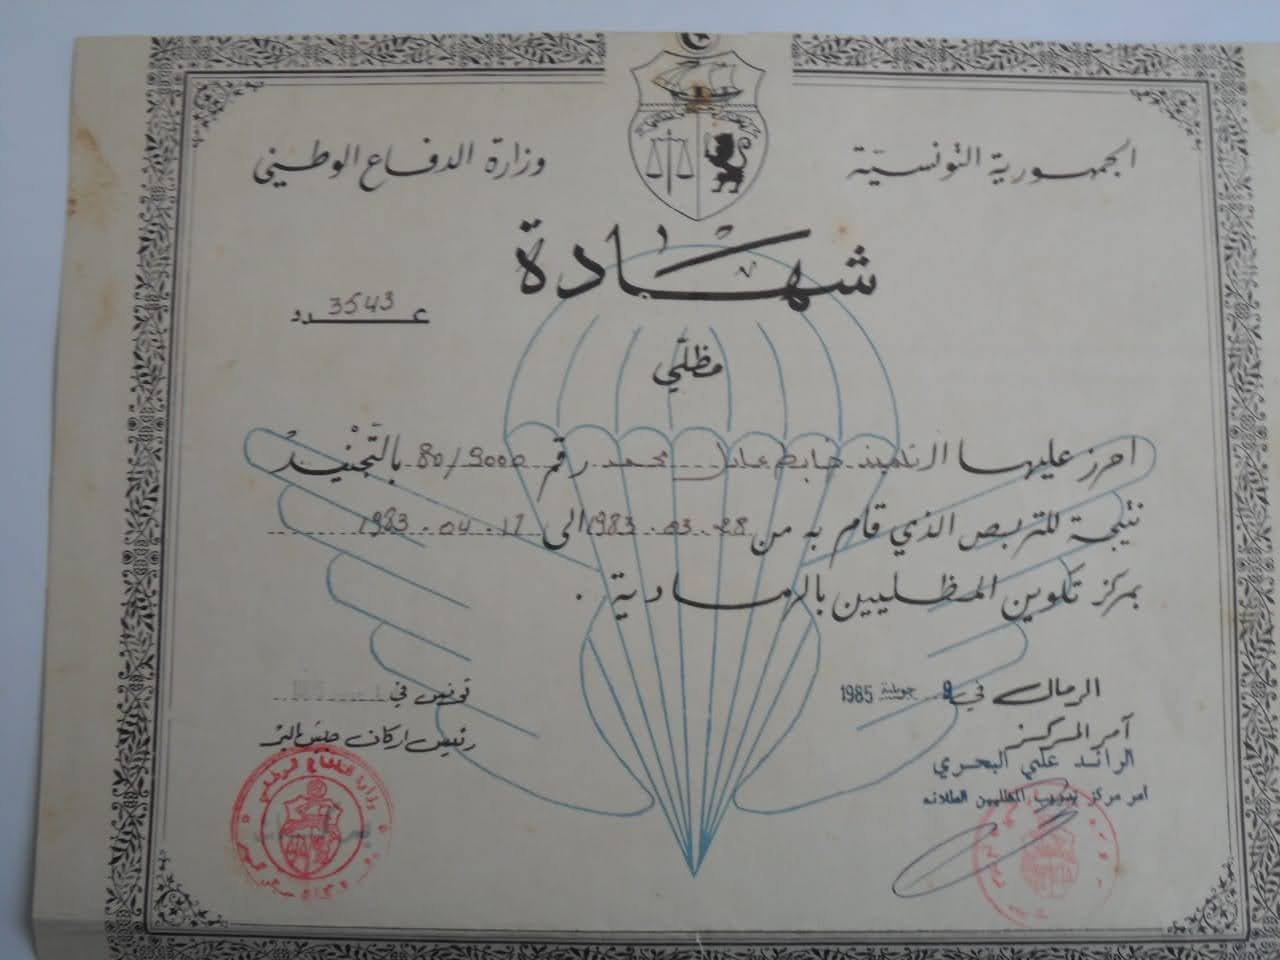 الجمهورية التونسية
وزارة الدفاع الوطني
شهادة
عدد 3543
مظلّي
احرز عليها التلميذ ضابط عادل محمد رقم 80/9000 بالتجنيد
نتيجة للتربص الذي قام به من 28-03-1983 الى 17-04-1983
بمركز تكوين المظليين بالرمادية .
الرمال في 9 جويلية 1985
تونس في
آمر المركز
رئيس اركان جيش البر
الرائد علي البحري
امر مركز تدريب المظليين
وزارة الدفاع الوطني